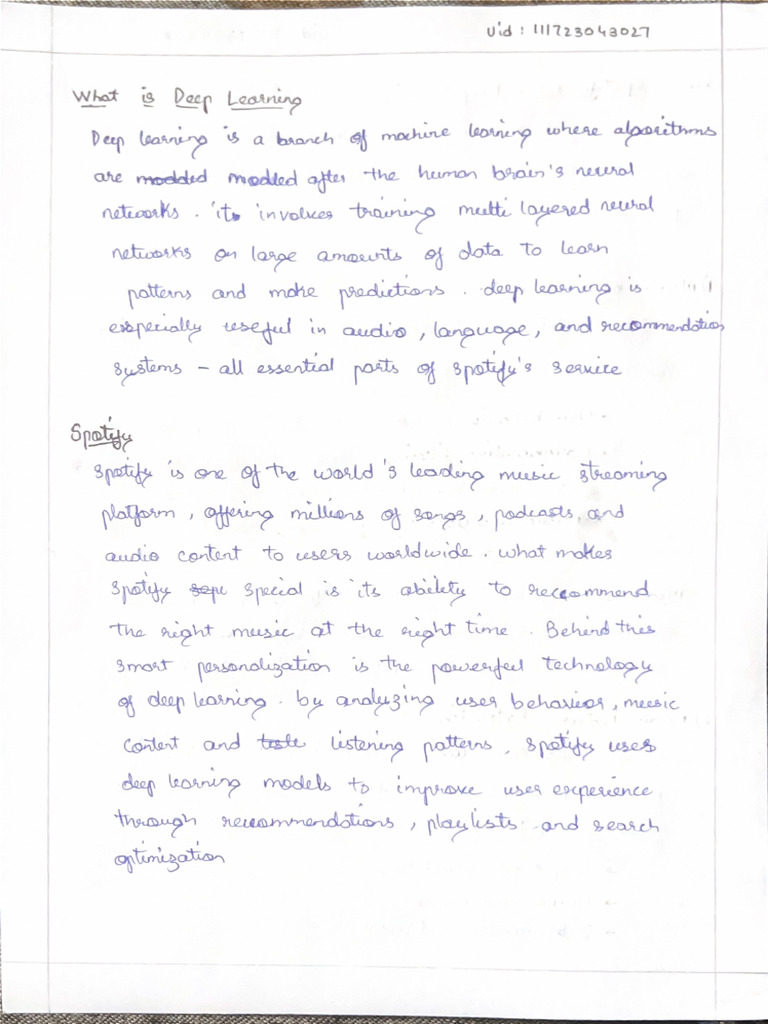 Uid : 111723043027
What is Deep Learning
Deep learning is a branch of machine learning where algorithms
are modded modled after the human brain's neural
networks. it involves training multi layered neural
networks on large amounts of data to learn
patterns and make predictions. deep learning is
especially useful in audio, language, and recommendation
systems - all essential parts of spotify's service
Spotify
Spotify is one of the world's leading music streaming
platform, offering millions of songs, podcasts, and
audio content to users worldwide. what makes
spotify special is its ability to reccommend
the right music at the right time. Behind this
smart personalization is the powerful technology
of deep learning. by analyzing user behavior, music
content and listening patterns, spotify uses
deep learning models to improve user experience
through recommendations, playlists and search
optimization